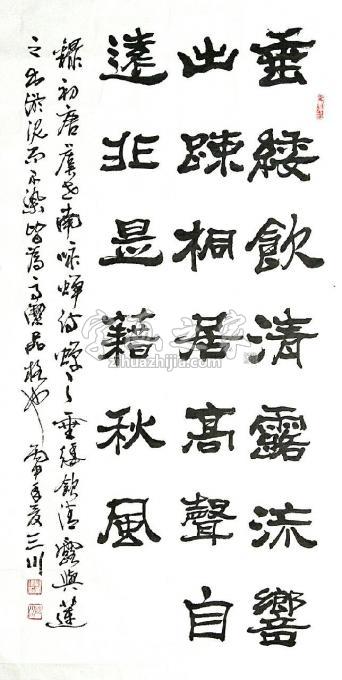 垂緌飲清露流響
出疎桐居高聲自
遠非是藉秋風
錄初唐虞世南咏蟬詩蟬之垂緌飲清露與蓮
之出淤泥而不染皆為高潔品格也 三川
字画之家
www.zihuazhijia.com